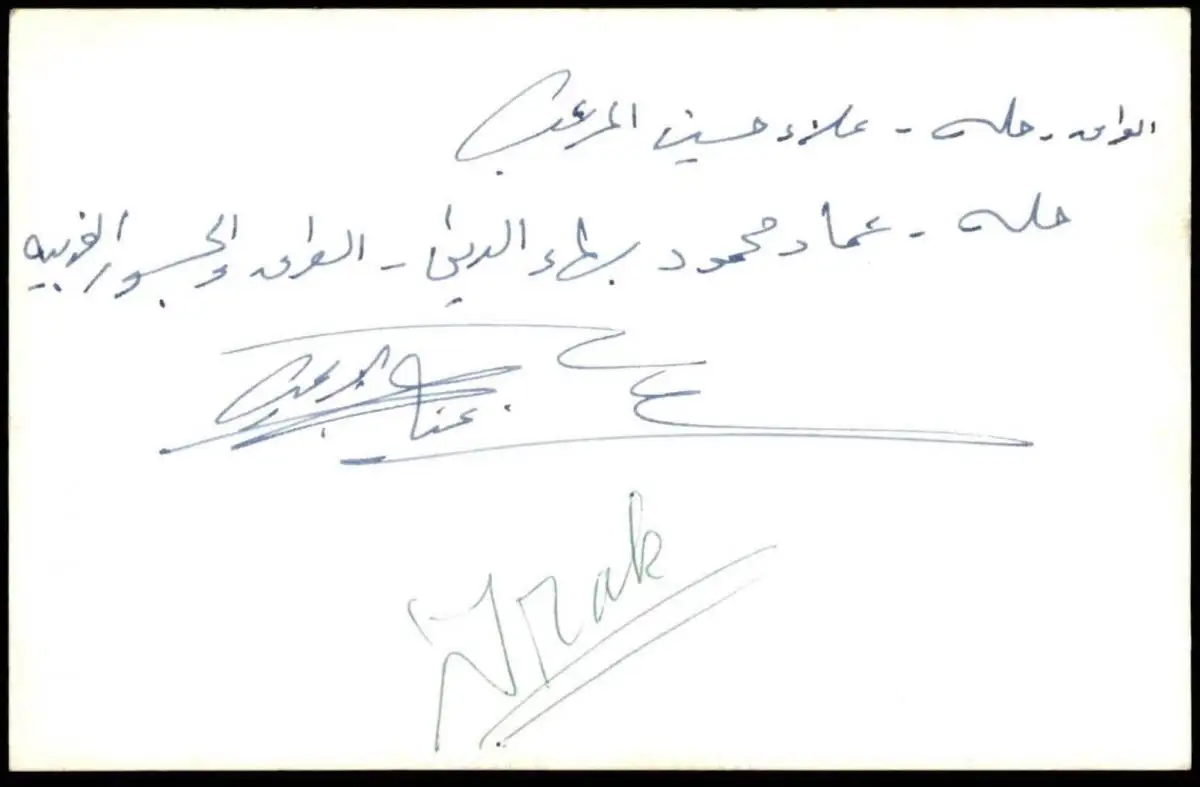 العراق - حله - علاء حسين المرعب
حله - عماد محمود بهاء الدين - العراق والجسور الغربيه
Irak